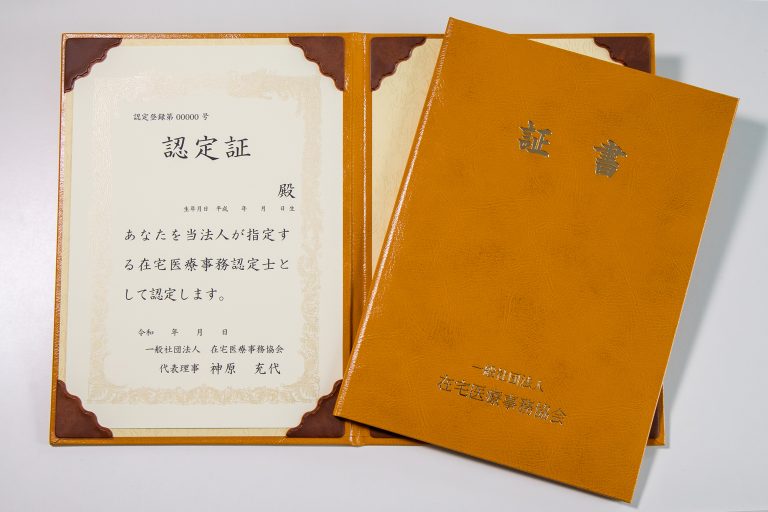 認定登録第00000号
認定証
殿
生年月日 平成 年 月 日生
あなたを当法人が指定す
る在宅医療事務認定士と
して認定します。
令和 年 月 日
一般社団法人 在宅医療事務協会
代表理事 神原 充代
証書
一般社団法人
在宅医療事務協会